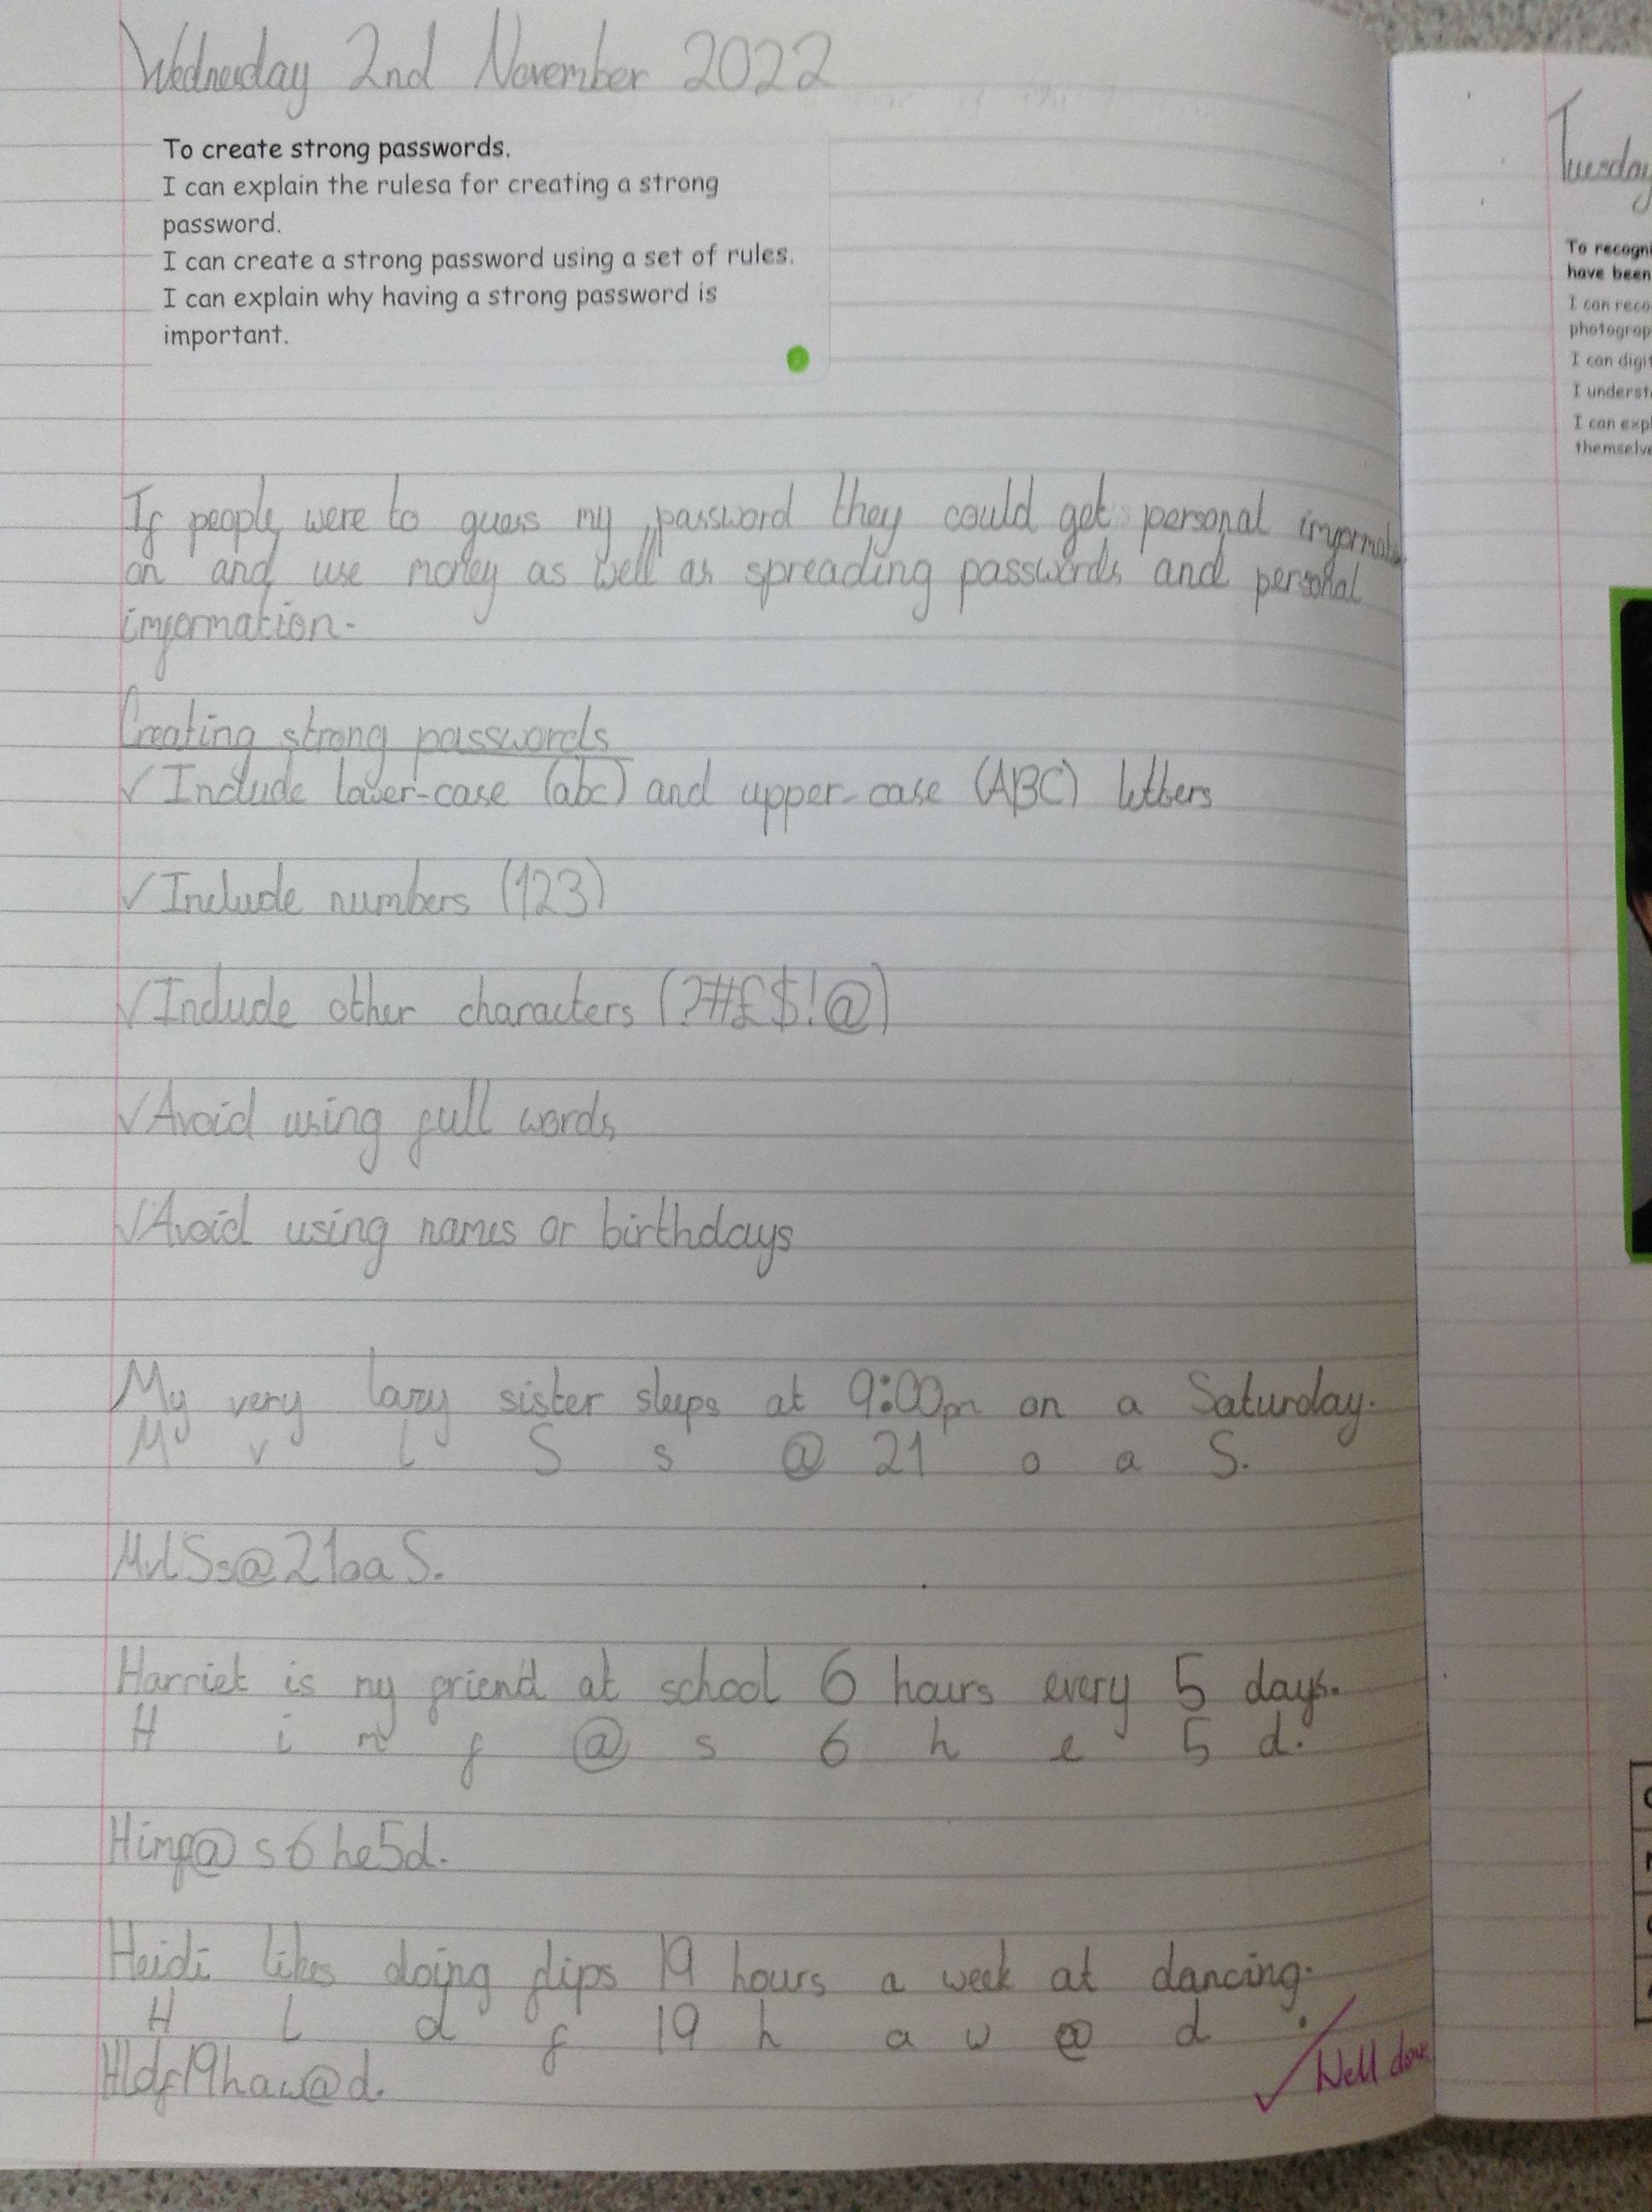 Wednesday 2nd November 2022
To create strong passwords.
I can explain the rulesa for creating a strong
password.
I can create a strong password using a set of rules.
I can explain why having a strong password is
important.
If people were to guess my password they could get personal informati
on and use money as well as spreading passwords and personal
information.
Creating strong passwords
✓ Include lower-case (abc) and upper-case (ABC) letters
✓ Include numbers (123)
✓ Include other characters (?#£$!@)
✓ Avoid using full words
✓ Avoid using names or birthdays
My very lazy sister sleeps at 9:00pm on a Saturday.
M v l S s @ 21 o a S.
MvlSs@21oaS.
Harriet is my friend at school 6 hours every 5 days.
H i m f @ s 6 h e 5 d.
Himf@s6he5d.
Heidi likes doing flips 19 hours a week at dancing.
H l d f 19 h a w @ d .
Hldf19haw@d.
Well done
Tuesday
To recogni
have been
I can reco
photograp
I can digit
I underst
I can expl
themselve